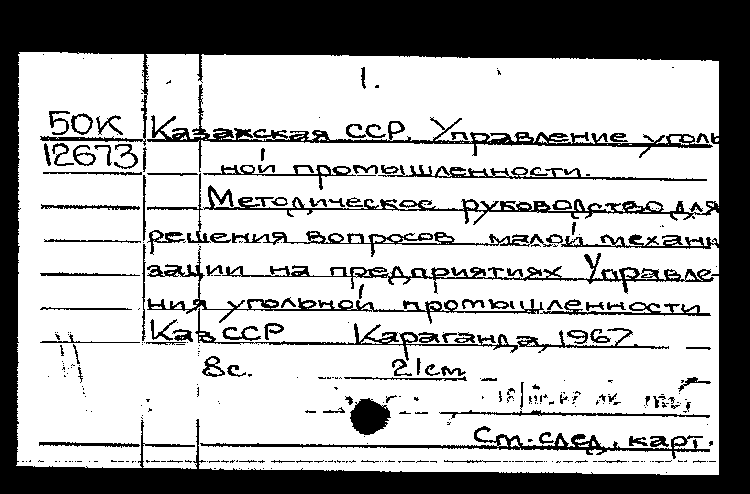 1.
50К Казахская ССР. Управление уголь
12673 ной промышленности.
Методическое руководство для
решения вопросов малой механи
зации на предприятиях Управле-
ния угольной промышленности
КазССР Караганда, 1967.
8с. 21см
См. след. карт.